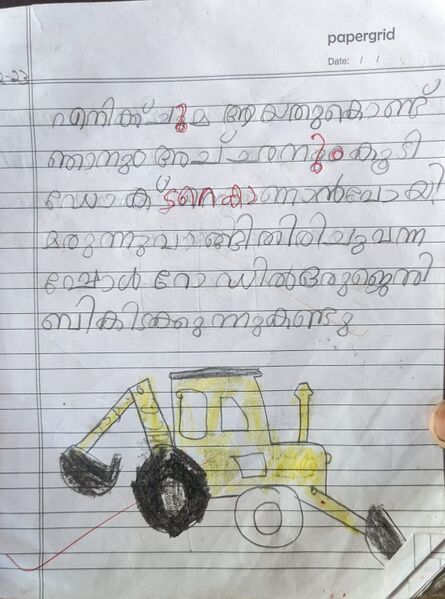 papergrid
Date: / /
2-23
എനിക്ക് ചുമ ആയതുകൊണ്ട്
ഞാനും അച്ഛനും കൂടി
ഡോക്ടറെകാണാൻപോയി
മരുന്നുവാങ്ങിതിരിചുവന്ന
പ്പോൾ റോഡിൽഒരുജെസി
ബികിടക്കുന്നുകണ്ടു